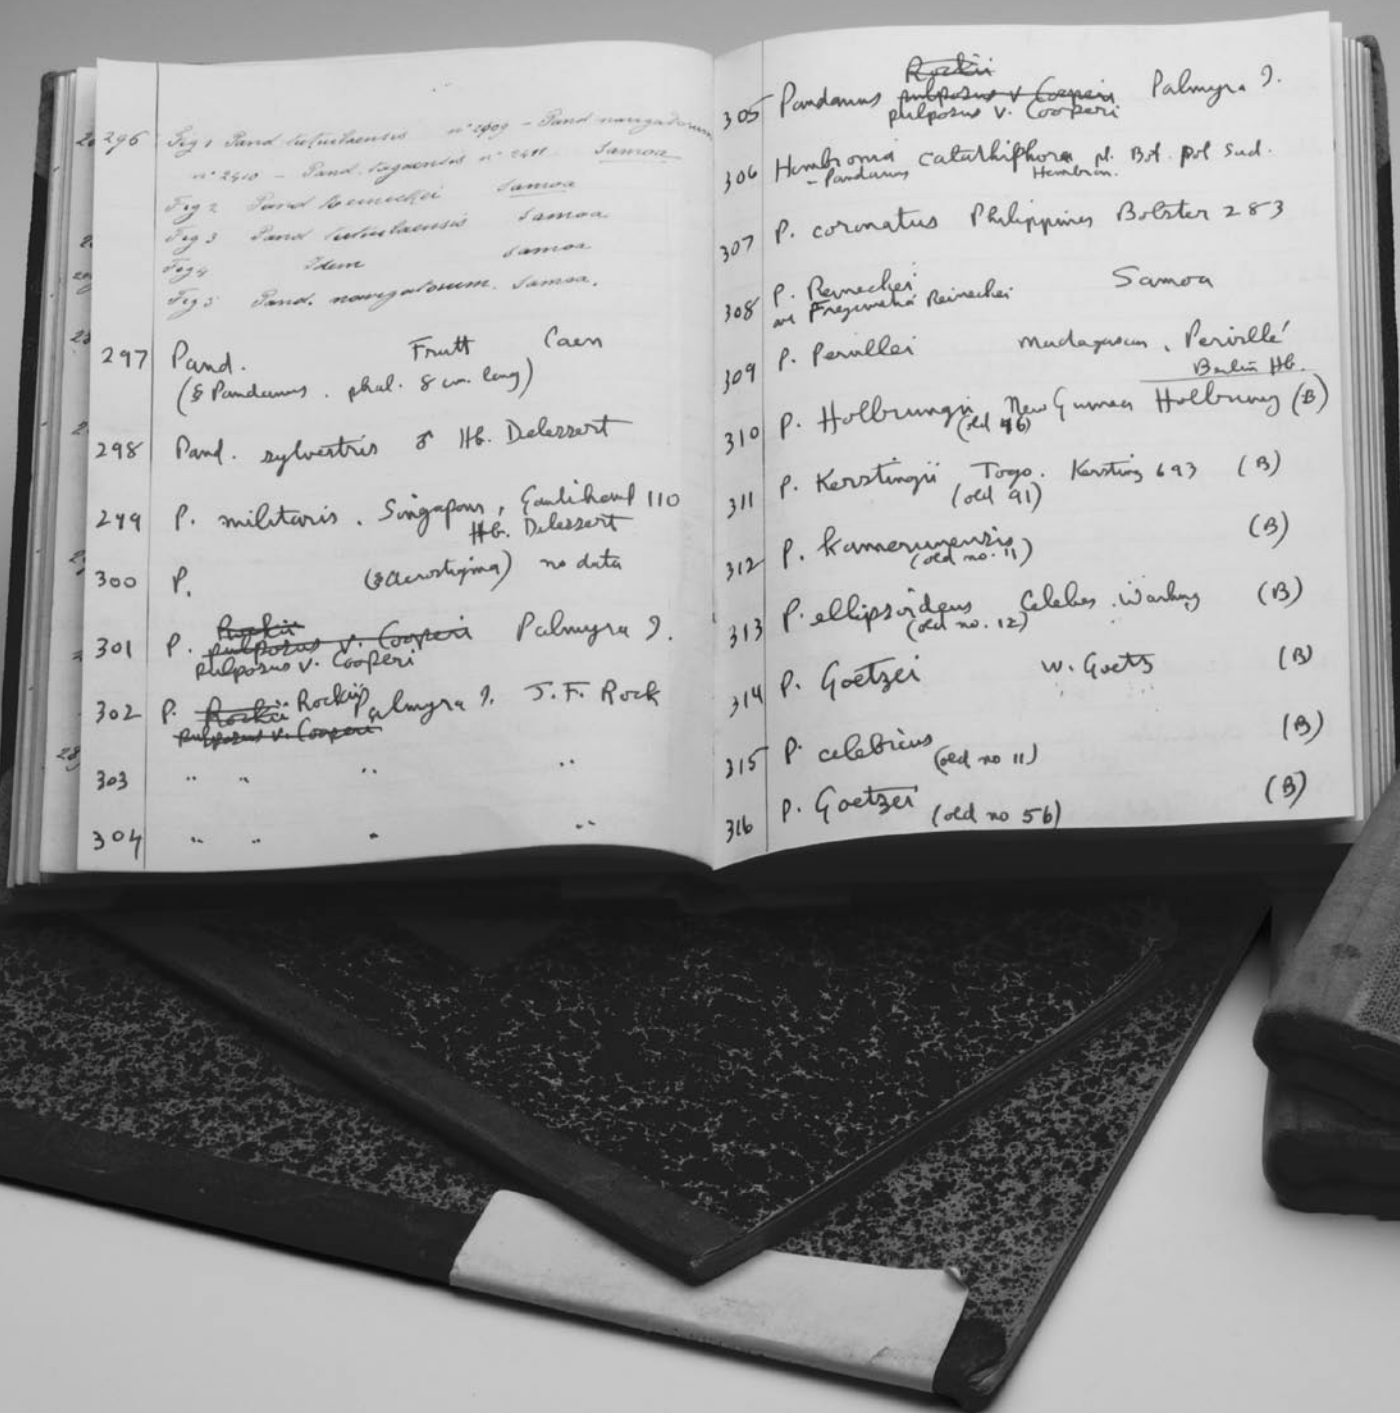 296 Fig 1 Pand tutuilaensis n° 2909 – Pand navigatorum
n° 2910 – Pand. Samoa
Fig 2 Pand Reineckei Samoa
Fig 3 Pand tutuilaensis Samoa
Fig 4 Idem Samoa
Fig 5 Pand. navigatorum. Samoa.
297 Pand. Fruit Caen
(§ Pandanus. phal. 8 cm. long)
298 Pand. sylvestris ♂ Hb. Delessert
299 P. militaris. Singapour, 110
Hb. Delessert
300 P. (§ Acrostigma) no data
Rockii
301 P. pulposus v. Cooperi Palmyra I.
pulposus v. Cooperi
302 P. Rockii Rockii Palmyra I. J. F. Rock
pulposus v. Cooperi
303 " " " "
304 " " " "
Rockii
305 Pandanus pulposus v Cooperi Palmyra I.
pulposus v. Cooperi
306 Hombronia calathiphora pl. Bot. pol Sud.
– Pandanus Hombron.
307 P. coronatus Philippines Bolster 283
308 P. Reineckei Samoa
Freycinetia Reineckei
309 P. Pervillei Madagascar, Pervillé
Berlin Hb.
310 P. Hollrungii New Guinea Hollrung (B)
(old 46)
311 P. Kerstingii Togo. Kersting 693 (B)
(old 91)
312 P. kamerunensis (B)
(old no. 11)
313 P. ellipsoideus Celebes. Warburg (B)
(old no. 12)
314 P. Goetzei W. Goetz (B)
315 P. celebicus (B)
(old no 11)
316 P. Goetzei (B)
(old no 56)